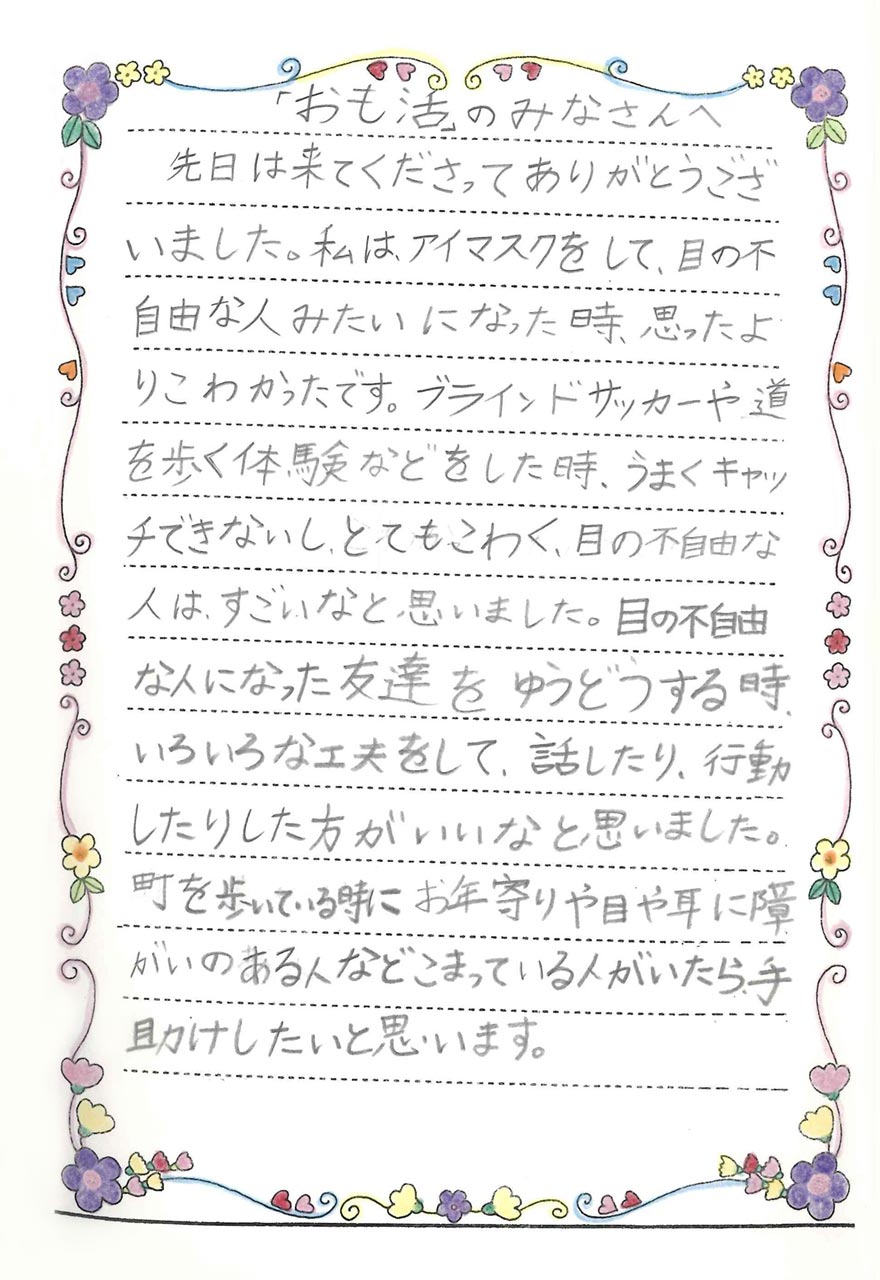 「おも活」のみなさんへ
先日は来てくださってありがとうござ
いました。私は、アイマスクをして、目の不
自由な人みたいになった時、思ったよ
りこわかったです。ブラインドサッカーや道
を歩く体験などをした時、うまくキャッ
チできないし、とてもこわく、目の不自由な
人は、すごいなと思いました。目の不自由
な人になった友達をゆうどうする時、
いろいろな工夫をして、話したり、行動
したりした方がいいなと思いました。
町を歩いている時にお年寄りや目や耳に障
がいのある人などこまっている人がいたら、手
助けしたいと思います。